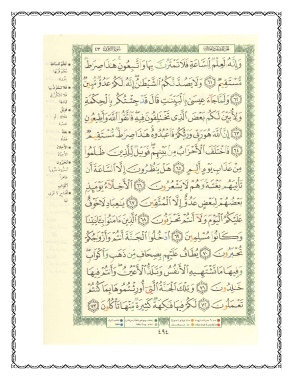 وَإِنَّهُ لَعِلْمٌ لِّلسَّاعَةِ فَلَا تَمْتَرُنَّ بِهَا وَاتَّبِعُونِ هَٰذَا صِرَاطٌ
مُّسْتَقِيمٌ ٦١ وَلَا يَصُدَّنَّكُمُ الشَّيْطَانُ إِنَّهُ لَكُمْ عَدُوٌّ مُّبِينٌ
٦٢ وَلَمَّا جَاءَ عِيسَىٰ بِالْبَيِّنَاتِ قَالَ قَدْ جِئْتُكُم بِالْحِكْمَةِ
وَلِأُبَيِّنَ لَكُم بَعْضَ الَّذِي تَخْتَلِفُونَ فِيهِ فَاتَّقُوا اللَّهَ وَأَطِيعُونِ
٦٣ إِنَّ اللَّهَ هُوَ رَبِّي وَرَبُّكُمْ فَاعْبُدُوهُ هَٰذَا صِرَاطٌ مُّسْتَقِيمٌ
٦٤ فَاخْتَلَفَ الْأَحْزَابُ مِن بَيْنِهِمْ فَوَيْلٌ لِّلَّذِينَ ظَلَمُوا
مِنْ عَذَابِ يَوْمٍ أَلِيمٍ ٦٥ هَلْ يَنظُرُونَ إِلَّا السَّاعَةَ أَن
تَأْتِيَهُم بَغْتَةً وَهُمْ لَا يَشْعُرُونَ ٦٦ الْأَخِلَّاءُ يَوْمَئِذٍ
بَعْضُهُمْ لِبَعْضٍ عَدُوٌّ إِلَّا الْمُتَّقِينَ ٦٧ يَا عِبَادِ لَا خَوْفٌ
عَلَيْكُمُ الْيَوْمَ وَلَا أَنتُمْ تَحْزَنُونَ ٦٨ الَّذِينَ آمَنُوا بِآيَاتِنَا
وَكَانُوا مُسْلِمِينَ ٦٩ ادْخُلُوا الْجَنَّةَ أَنتُمْ وَأَزْوَاجُكُمْ
تُحْبَرُونَ ٧٠ يُطَافُ عَلَيْهِم بِصِحَافٍ مِّن ذَهَبٍ وَأَكْوَابٍ
وَفِيهَا مَا تَشْتَهِيهِ الْأَنفُسُ وَتَلَذُّ الْأَعْيُنُ وَأَنتُمْ فِيهَا
خَالِدُونَ ٧١ وَتِلْكَ الْجَنَّةُ الَّتِي أُورِثْتُمُوهَا بِمَا كُنتُمْ
تَعْمَلُونَ ٧٢ لَكُمْ فِيهَا فَاكِهَةٌ كَثِيرَةٌ مِّنْهَا تَأْكُلُونَ ٧٣
٤٩٤